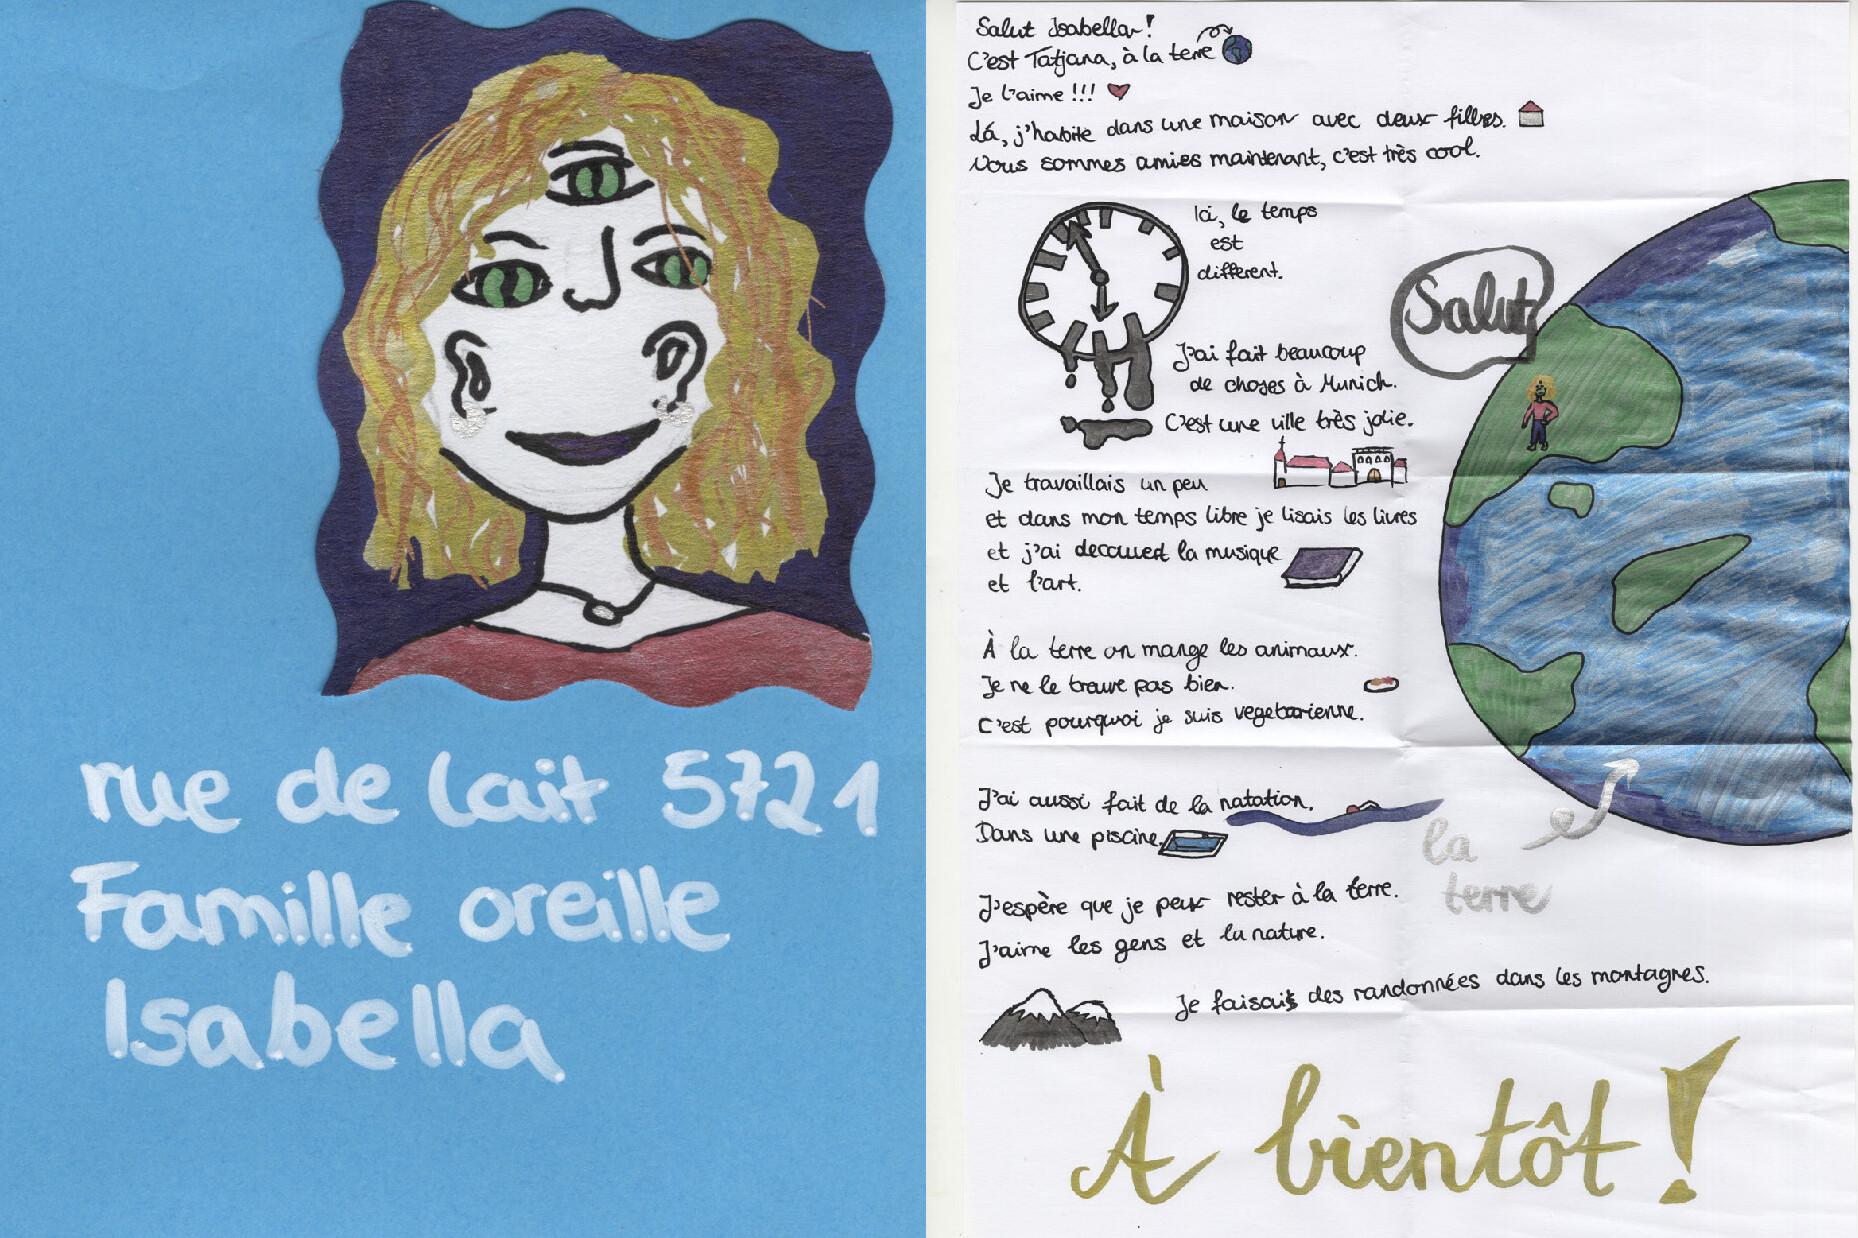 rue de lait 5721
Famille oreille
Isabella
Salut Isabella!
C'est Tatjana, à la terre
Je l'aime!!!
Lá, j'habite dans une maison avec deux filles.
Nous sommes amies maintenant, c'est très cool.
Ici, le temps
est
different.
Salut
J'ai fait beaucoup
de choses à Munich.
C'est une ville très jolie.
Je travaillais un peu
et dans mon temps libre je lisais les livres
et j'ai decouvert la musique
et l'art.
À la terre on mange les animaux.
Je ne le trouve pas bien.
C'est pourquoi je suis vegetarienne.
J'ai aussi fait de la natation.
Dans une piscine.
la
terre
J'espère que je peux rester à la terre.
J'aime les gens et la nature.
Je faisais des randonnées dans les montagnes.
À bientôt!